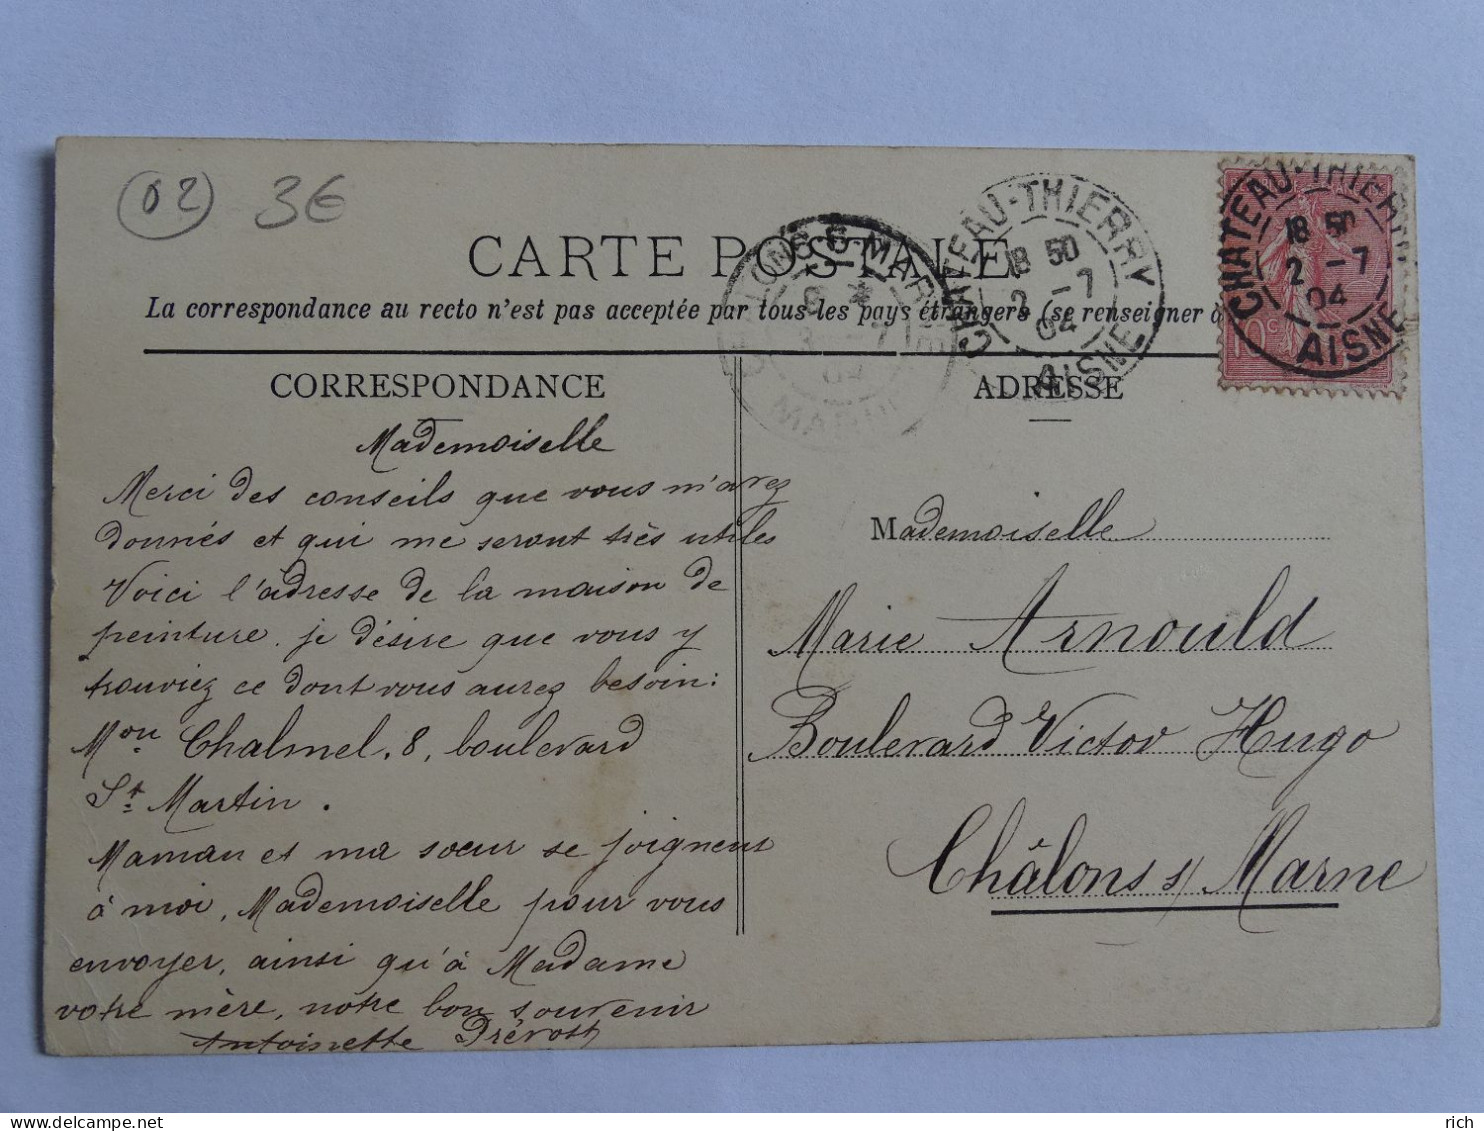 02 3€
CARTE POSTALE
La correspondance au recto n'est pas acceptée par tous les pays étrangers (se renseigner à
CHATEAU-THIERRY
18 50
2 -7
04
AISNE
CHATEAU-THIERRY
18 50
2 -7
04
AISNE
10c
CHALONS-S-MARNE
8
3 -7
04
MARNE
CORRESPONDANCE
Mademoiselle
Merci des conseils que vous m'avez
donnés et qui me seront très utiles
Voici l'adresse de la maison de
peinture. je désire que vous y
trouviez ce dont vous aurez besoin:
Mon Chalmel. 8, boulevard
St Martin.
Maman et ma sœur se joignent
à moi, Mademoiselle pour vous
envoyer, ainsi qu'à Madame
votre mère, notre bon souvenir
Antoinette Prévost
ADRESSE
Mademoiselle
Marie Arnould
Boulevard Victor Hugo
Châlons s/ Marne
rich